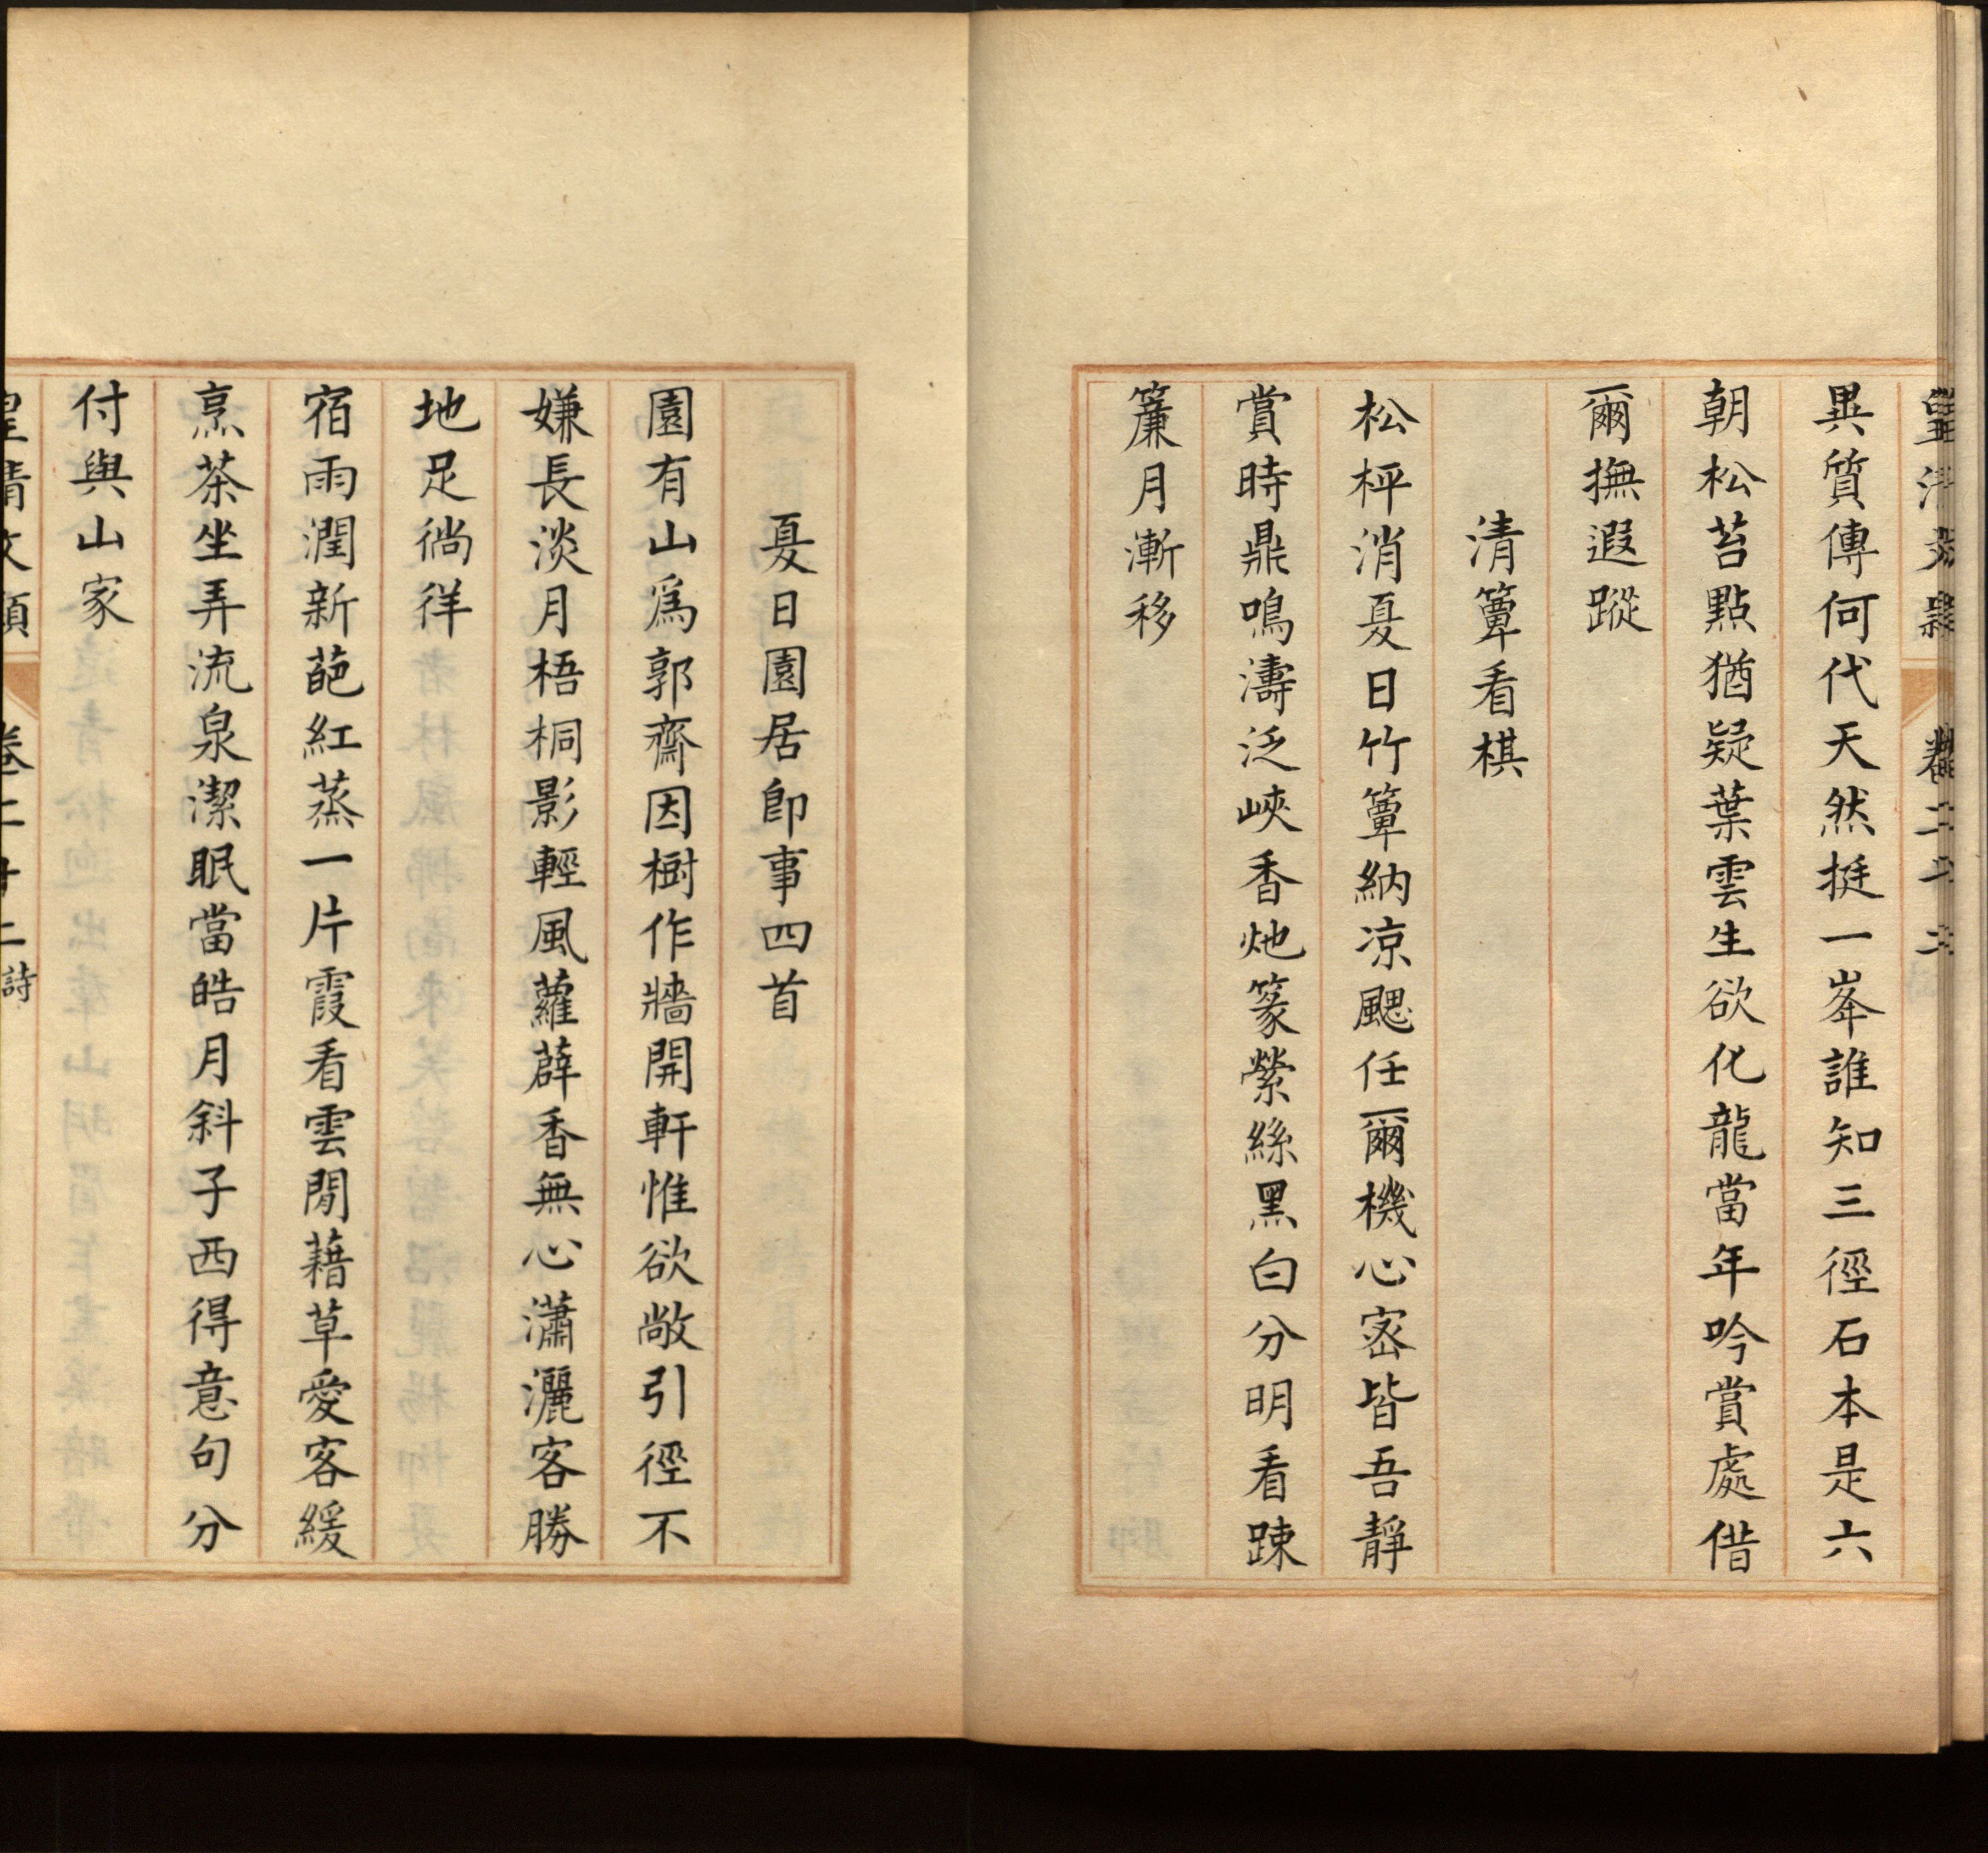 皇清文穎 卷二十二
異質傳何代天然挺一峯誰知三徑石本是六
朝松苔點猶疑葉雲生欲化龍當年吟賞處借
爾撫遐蹤
清簟看棋
松枰消夏日竹簟納凉颸任爾機心宻皆吾靜
賞時鼎鳴濤泛峽香灺篆縈絲黑白分明看踈
簾月漸移
夏日園居卽事四首
園有山爲郭齋因樹作牆開軒惟欲敞引徑不
嫌長淡月梧桐影輕風蘿薜香無心瀟灑客勝
地足徜徉
宿雨潤新葩紅蒸一片霞看雲閒藉草愛客緩
烹茶坐弄流泉潔眠當皓月斜子西得意句分
付與山家
皇清文穎 卷二十二 詩